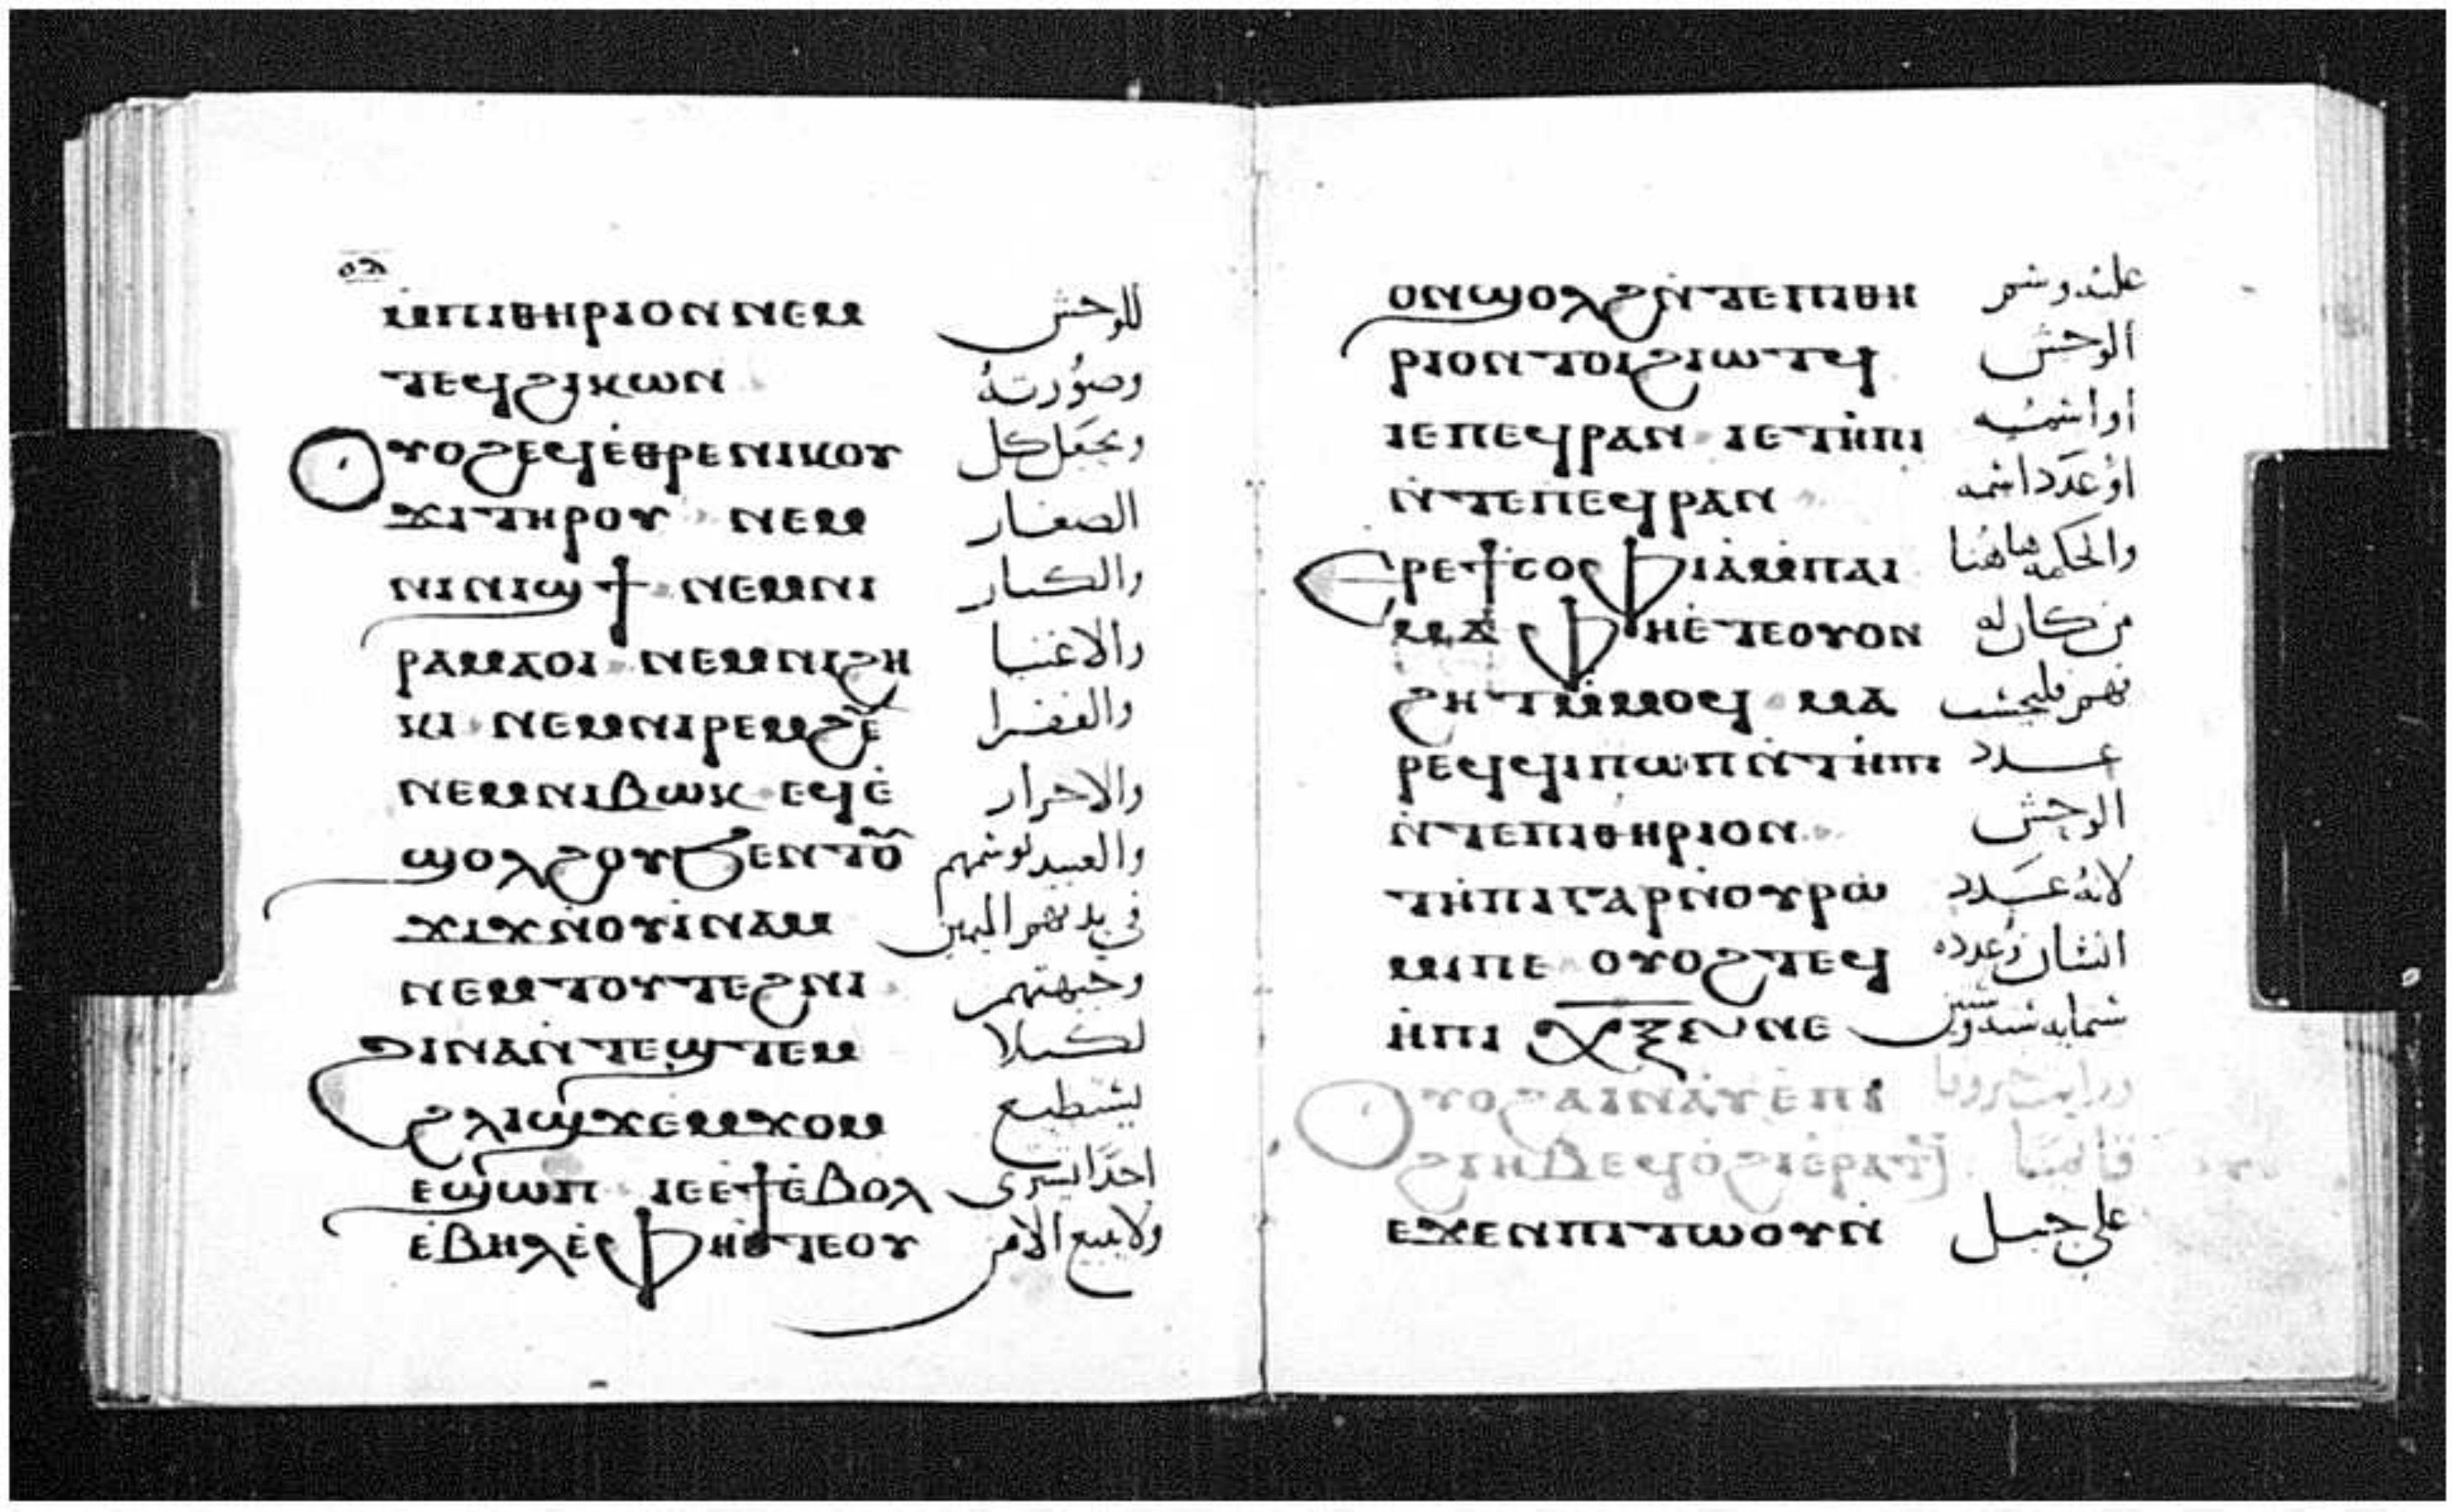 ⲙ̀ⲡⲓⲑⲏⲣⲓⲟⲛ ⲛⲉⲙ للوحش
ⲧⲉϥϩⲓⲕⲱⲛ وصُورتهُ
ⲟⲩⲟϩ ⲉϥⲉ̀ⲑⲣⲉ ⲛⲓⲕⲟⲩ ويجعَل كل
ϫⲓ ⲧⲏⲣⲟⲩ ⲛⲉⲙ الصغار
ⲛⲓⲛⲓϣϯ ⲛⲉⲙ ⲛⲓ والكبار
ⲣⲁⲙⲁⲟⲓ ⲛⲉⲙ ⲛⲓϩⲏ والاغنيا
ⲕⲓ ⲛⲉⲙ ⲛⲓⲣⲉⲙϩⲉ̅ والفقرا
ⲛⲉⲙ ⲛⲓⲃⲱⲕ ⲉϥⲉ̀ والاحرار
ϣⲟⲗϩⲟⲩ ϧⲉⲛ ⲧⲟⲩ والعبيد لوشمهم
ϫⲓϫ ⲛ̀ⲟⲩⲓ̀ⲛⲁⲙ في يدهم اليمين
ⲛⲉⲙ ⲧⲟⲩⲧⲉϩⲛⲓ وجبهتهم
ϩⲓⲛⲁ ⲛ̀ⲧⲉϣⲧⲉⲙ لكيلا
ϩⲗⲓ ϣϫⲉⲙϫⲟⲙ يستطيع
ⲉϣⲱⲡ ⲓⲉ ⲉ̀ϯ ⲉ̀ⲃⲟⲗ احدًا يشتري
ⲉ̀ⲃⲏⲗ ⲉ̀ⲫⲏ ⲉ̀ⲧⲉ ⲟⲩ ولا يبيع الا من
ⲟⲛ ϣⲟⲗϩ ⲛ̀ⲧⲉ ⲡⲓⲑⲏ عليه وشم
ⲣⲓⲟⲛ ⲧⲟⲓ ϩⲓⲱⲧϥ الوحش
ⲓⲉ ⲡⲉϥⲣⲁⲛ ⲓⲉ ⲧⲏ̀ⲡⲓ او اسمه
ⲛ̀ⲧⲉ ⲡⲉϥⲣⲁⲛ اوْ عَدَد اسمه
ⲉⲣⲉ ϯⲥⲟⲫⲓⲁ ⲙ̀ⲡⲁⲓ والحكمه هاهُنا
ⲙⲁ ⲫⲏ ⲉ̀ⲧⲉ ⲟⲩⲟⲛ من كان له
ϩⲏⲧ ⲙ̀ⲙⲟϥ ⲙⲁ فهم فليحسب
ⲣⲉϥϥⲓⲡⲱⲡ ⲛ̀ⲧⲏ̀ⲡⲓ عدد
ⲛ̀ⲧⲉ ⲡⲓⲑⲏⲣⲓⲟⲛ الوحش
ⲧⲏ̀ⲡⲓ ⲅⲁⲣ ⲛ̀ⲟⲩⲣⲱ لانهُ عَدد
ⲙⲓ ⲡⲉ ⲟⲩⲟϩ ⲧⲉϥ انسان وعدده
ⲏ̀ⲡⲓ ⲭ̅ⲝ̅ⲋ̅ ⲛⲉ ستمايه ستة وستين
ⲟⲩⲟϩ ⲁⲓⲛⲁⲩ ⲉ̀ⲡⲓ
ϩⲓⲏⲃ ⲉϥⲟ̀ϩⲓ ⲉ̀ⲣⲁⲧϥ قايمًا
ⲉϫⲉⲛ ⲡⲓⲧⲱⲟⲩ ⲛ̀ على جبل